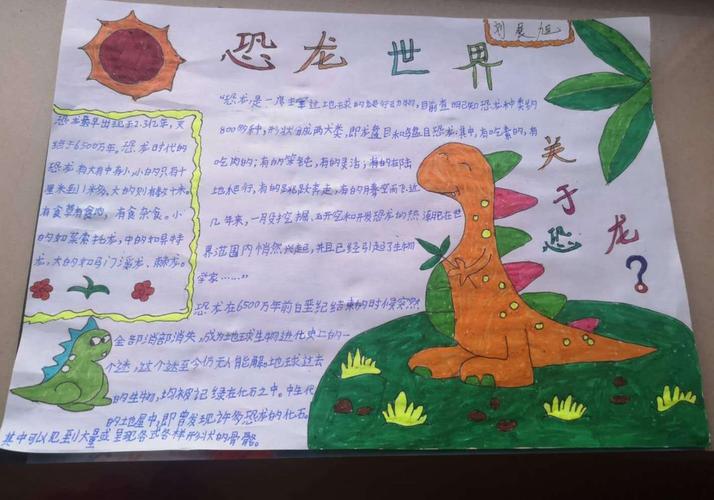 恐龙世界
关于恐龙?
恐龙最早出现于2.3亿年,灭
绝于6500万年。恐龙时代的
恐龙有大有中有小,小的只有十
厘米到1米多,大的则有数十米。
有食草有食肉,有食杂食。小
的如莱索托龙,中的如异特
龙,大的如马门溪龙、棘龙。
"恐龙,是一度主宰过地球的
动物,目前查明已知恐龙种类约
800多种,形状分成两大类,即龙盘目和鸟盘目恐龙,其中,有吃素的,有
吃肉的;有的笨钝,有的灵活;有的在陆
地爬行,有的跳跃奔走,有的腾空而飞近
几年来,一月 挖掘、研究和开发恐龙的热潮现在世
界范围内悄然兴起,并且已经引起了生物
学家……"
恐龙在6500万年前白垩纪结束的时候突然
全部消部消失,成为地球生物进化史上的一
个迷,这个迷至今仍无人能解。地球过去
的生物,均被记绿在化石之中。中生代
的地层中,即曾发现许多恐龙的化石。
其中可以见到大量或呈现各式各样形状的骨骼。